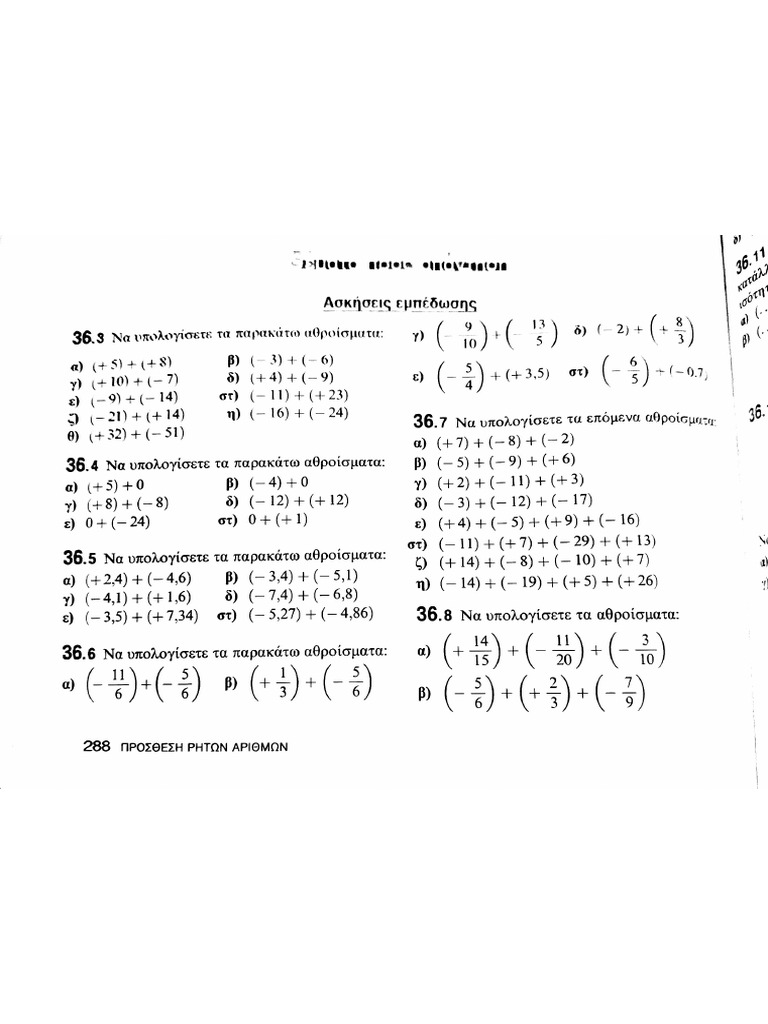 Ασκήσεις εμπέδωσης
36.3 Να υπολογίσετε τα παρακάτω αθροίσματα:
α) (+5) + (+8) β) (−3) + (−6)
γ) (+10) + (−7) δ) (+4) + (−9)
ε) (−9) + (−14) στ) (−11) + (+23)
ζ) (−21) + (+14) η) (−16) + (−24)
θ) (+32) + (−51)
36.4 Να υπολογίσετε τα παρακάτω αθροίσματα:
α) (+5) + 0 β) (−4) + 0
γ) (+8) + (−8) δ) (−12) + (+12)
ε) 0 + (−24) στ) 0 + (+1)
36.5 Να υπολογίσετε τα παρακάτω αθροίσματα:
α) (+2,4) + (−4,6) β) (−3,4) + (−5,1)
γ) (−4,1) + (+1,6) δ) (−7,4) + (−6,8)
ε) (−3,5) + (+7,34) στ) (−5,27) + (−4,86)
36.6 Να υπολογίσετε τα παρακάτω αθροίσματα:
α) (−11/6) + (−5/6) β) (+1/3) + (−5/6)
γ) (−9/10) + (−13/5) δ) (−2) + (+8/3)
ε) (−5/4) + (+3,5) στ) (−6/5) + (−0,7)
36.7 Να υπολογίσετε τα επόμενα αθροίσματα:
α) (+7) + (−8) + (−2)
β) (−5) + (−9) + (+6)
γ) (+2) + (−11) + (+3)
δ) (−3) + (−12) + (−17)
ε) (+4) + (−5) + (+9) + (−16)
στ) (−11) + (+7) + (−29) + (+13)
ζ) (+14) + (−8) + (−10) + (+7)
η) (−14) + (−19) + (+5) + (+26)
36.8 Να υπολογίσετε τα αθροίσματα:
α) (+14/15) + (−11/20) + (−3/10)
β) (−5/6) + (+2/3) + (−7/9)
288 ΠΡΟΣΘΕΣΗ ΡΗΤΩΝ ΑΡΙΘΜΩΝ
36.11